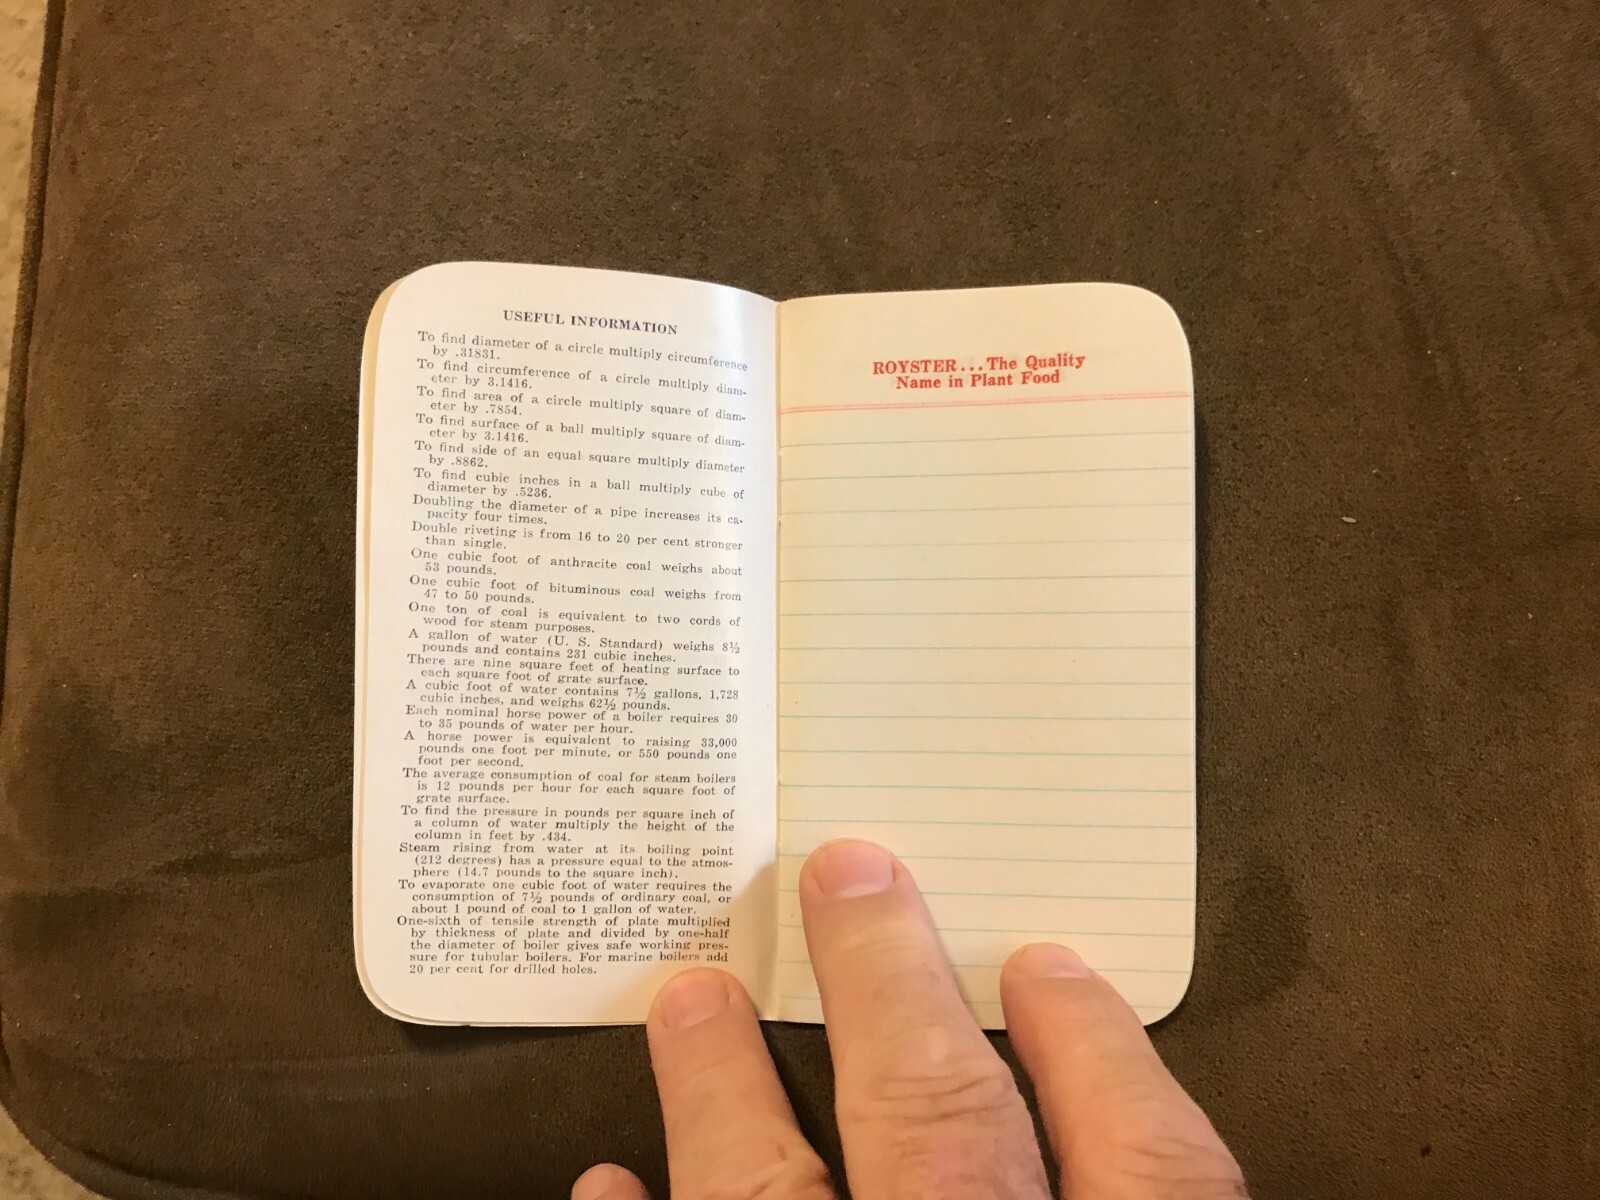 USEFUL INFORMATION
To find diameter of a circle multiply circumference
by .31831.
To find circumference of a circle multiply diam-
eter by 3.1416.
To find area of a circle multiply square of diam-
eter by .7854.
To find surface of a ball multiply square of diam-
eter by 3.1416.
To find side of an equal square multiply diameter
by .8862.
To find cubic inches in a ball multiply cube of
diameter by .5236.
Doubling the diameter of a pipe increases its ca-
pacity four times.
Double riveting is from 16 to 20 per cent stronger
than single.
One cubic foot of anthracite coal weighs about
53 pounds.
One cubic foot of bituminous coal weighs from
47 to 50 pounds.
One ton of coal is equivalent to two cords of
wood for steam purposes.
A gallon of water (U. S. Standard) weighs 8⅓
pounds and contains 231 cubic inches.
There are nine square feet of heating surface to
each square foot of grate surface.
A cubic foot of water contains 7½ gallons, 1,728
cubic inches, and weighs 62½ pounds.
Each nominal horse power of a boiler requires 30
to 35 pounds of water per hour.
A horse power is equivalent to raising 33,000
pounds one foot per minute, or 550 pounds one
foot per second.
The average consumption of coal for steam boilers
is 12 pounds per hour for each square foot of
grate surface.
To find the pressure in pounds per square inch of
a column of water multiply the height of the
column in feet by .434.
Steam rising from water at its boiling point
(212 degrees) has a pressure equal to the atmos-
phere (14.7 pounds to the square inch).
To evaporate one cubic foot of water requires the
consumption of 7½ pounds of ordinary coal, or
about 1 pound of coal to 1 gallon of water.
One-sixth of tensile strength of plate multiplied
by thickness of plate and divided by one-half
the diameter of boiler gives safe working pres-
sure for tubular boilers. For marine boilers add
20 per cent for drilled holes.
ROYSTER...The Quality
Name in Plant Food